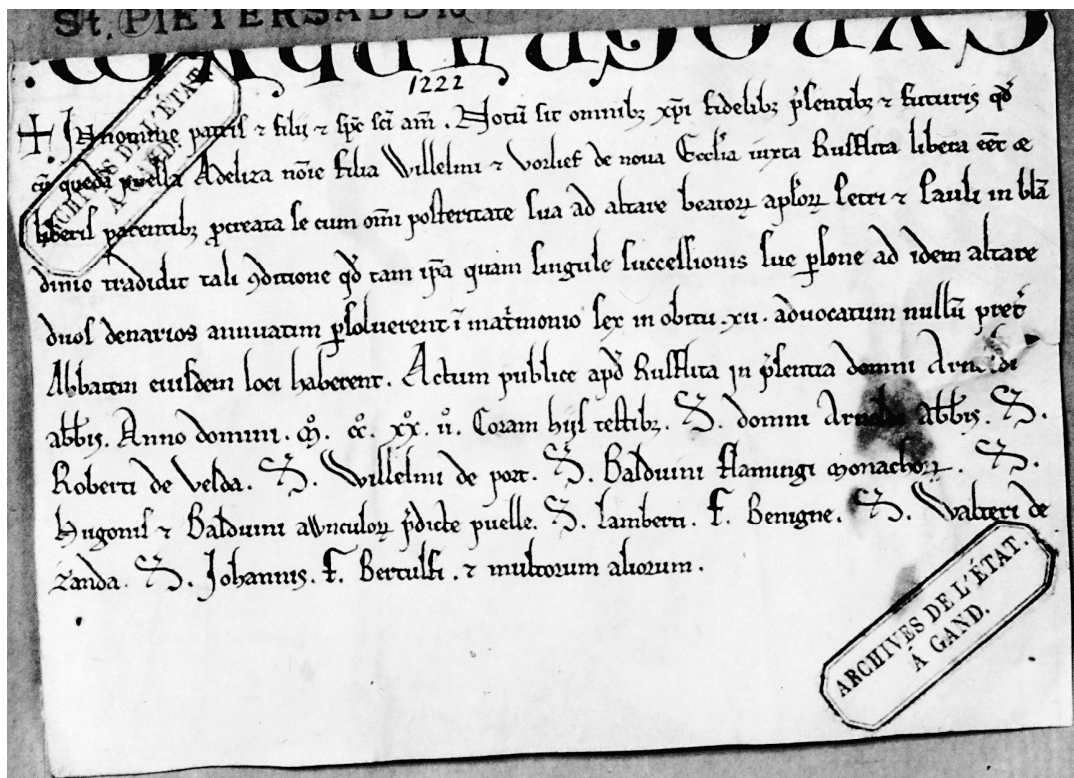 St. PIETERSABDIJ
CYROGRAPHVM:
1222
✝. In nomine patris ⁊ filii ⁊ sp̄c sc̄i am̄. Notū sit omnibꝫ xp̄i fidelibꝫ p̄sentibꝫ ⁊ futuris qđ
cū quedā puella Adeliza nōie filia Willelmi ⁊ Vorlief de noua Eccl̄ia iuxta Rusflita libera eēt ⁊ e
liberis parentibꝫ ꝓcreata se cum om̄i posteritate sua ad altare beatoꝝ ap̄loꝝ Petri ⁊ Pauli in blā
dinio tradidit tali ꝯditione qđ tam ip̄a quam singule successionis sue ꝑsone ad idem altare
duos denarios annuatim ꝑsoluerent ī mat̄monio sex in obitu .xii. aduocatum nullū pret̄
Abbatem eiusdem loci haberent. Actum publice apđ Rusflita in p̄sentia domni Arnoldi
abb̄is. Anno domini. ꝳ. cc̊. xx̊. ii̊. Coram hijs testibꝫ. S. domni Arnoldi abb̄is. S.
Roberti de Velda. S. Willelmi de port. S. Balduini flamingi monachoꝝ. S.
Hugonis ⁊ Balduini awnculoꝝ p̄dicte puelle. S. Lamberti. F. Benigne. S. Walteri de
Zanda. S. Johannis. F. Bertulfi. ⁊ multorum aliorum.
ARCHIVES DE L'ÉTAT
À GAND.
ARCHIVES DE L'ÉTAT.
À GAND.